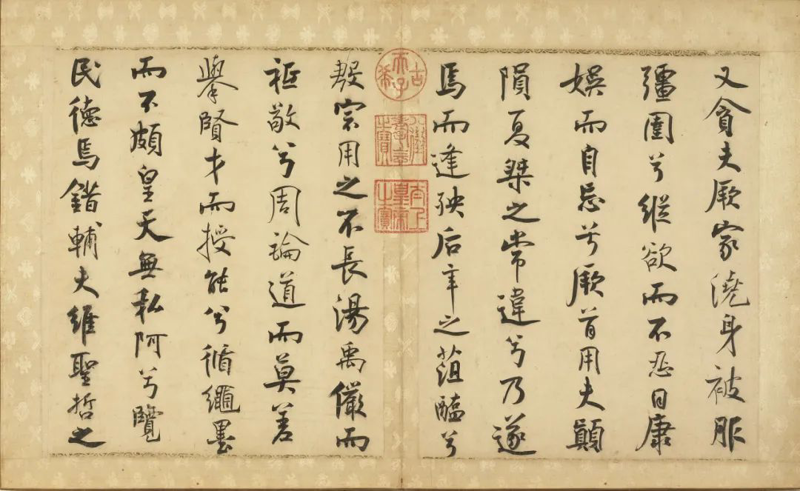 又貪夫厥家澆身被服
彊圉兮縱欲而不忍日康
娛而自忘兮厥首用夫顛
隕夏桀之常違兮乃遂
焉而逢殃后辛之菹醢兮
古希天子
太上皇帝之寶
殷宗用之不長湯禹儼而
祗敬兮周論道而莫差
舉賢才而授能兮循繩墨
而不頗皇天無私阿兮覽
民德焉錯輔夫維聖哲之